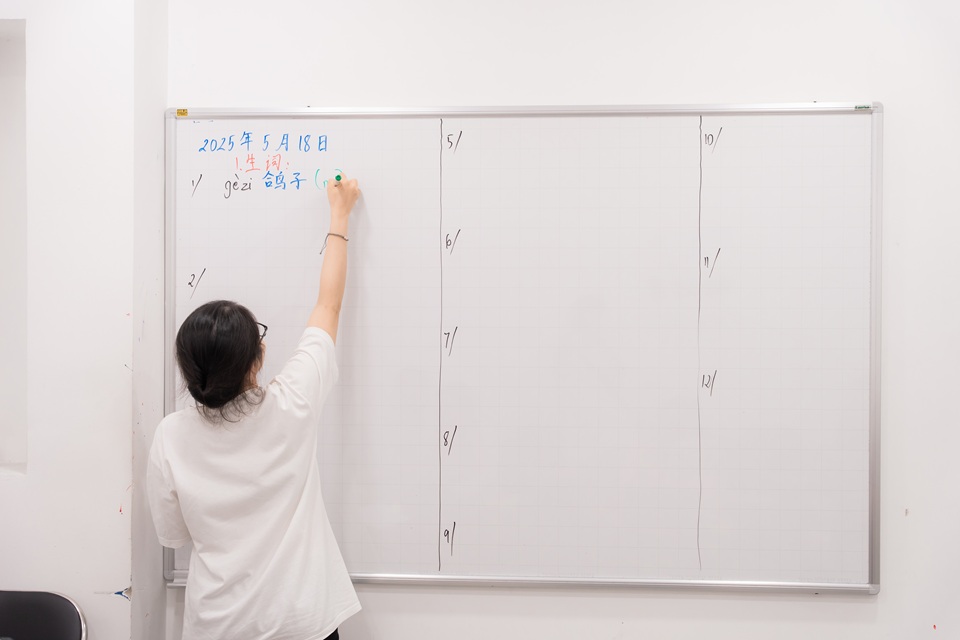 2025年5月18日
1.生词:
1/ gēzi 鸽子 (n)
2/
5/
6/
7/
8/
9/
10/
11/
12/